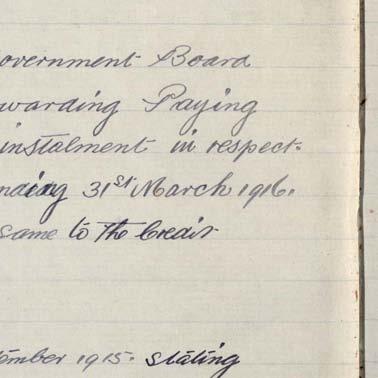 overnment Board
warding Paying
instalment in respect
nding 31st March 1916.
same to the Credit
tember 1915. stating